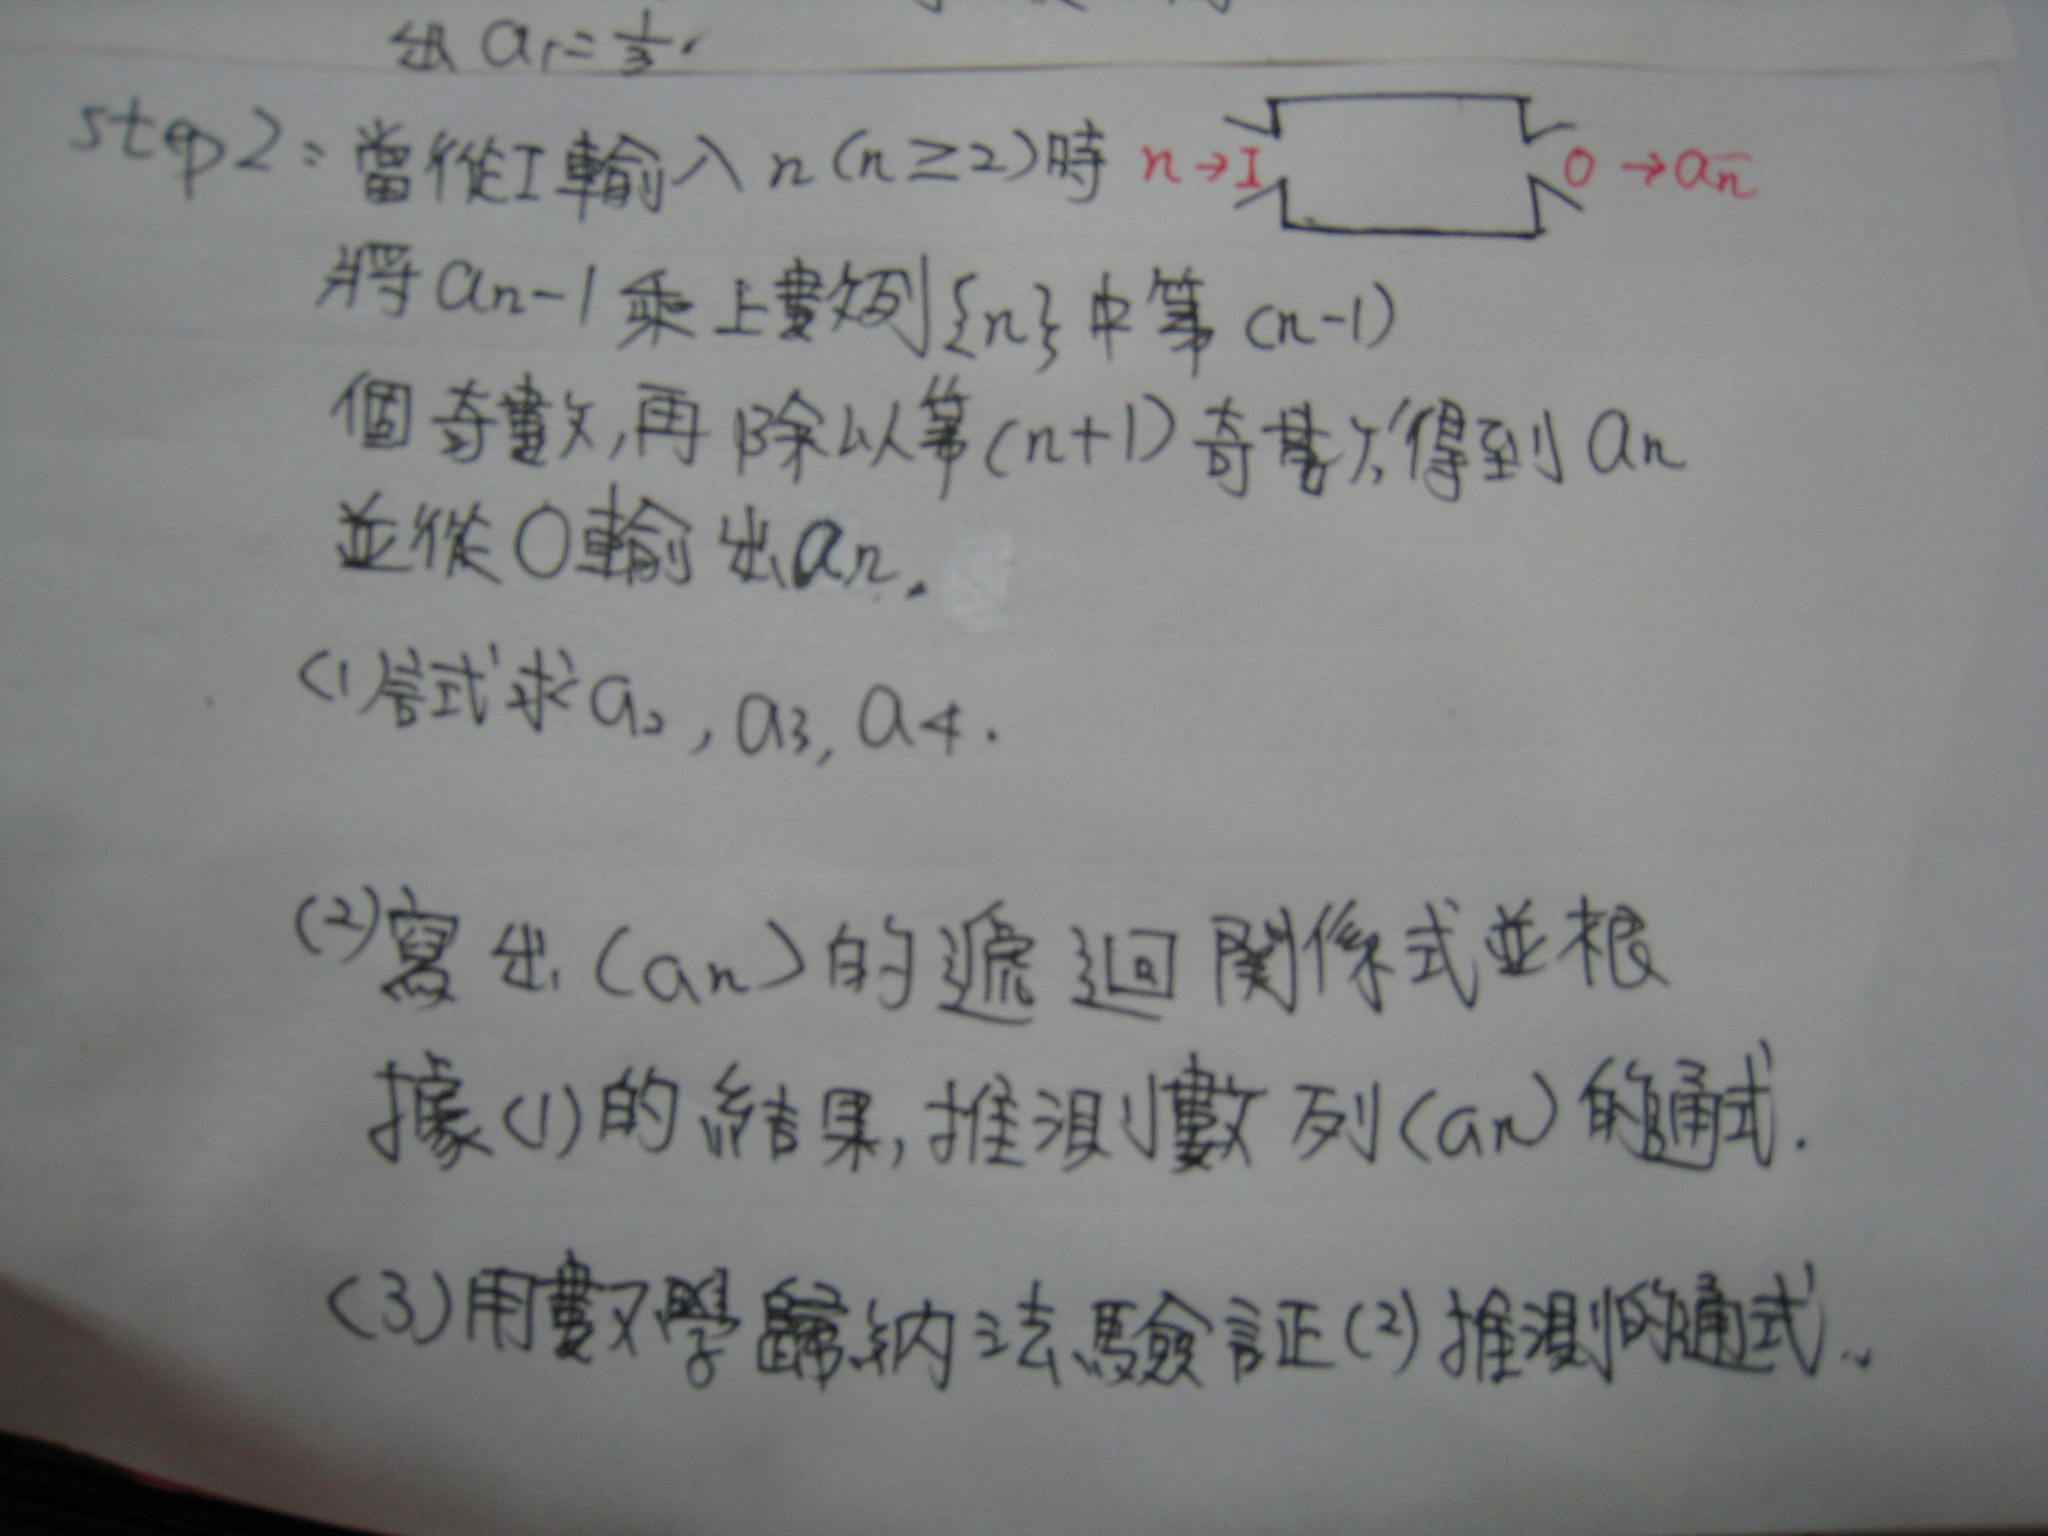 出 a₁=1/3.
step2：當從I輸入n(n≥2)時 n→I O→an
將an-1乘上數列{n}中第(n-1)
個奇數,再除以第(n+1)奇數得到an
並從O輸出an.
(1)試求a₂,a3,a4.
(2)寫出(an)的遞迴関係式並根
據(1)的結果,推測數列(an)的通式.
(3)用數學歸納法驗証(2)推測的通式.